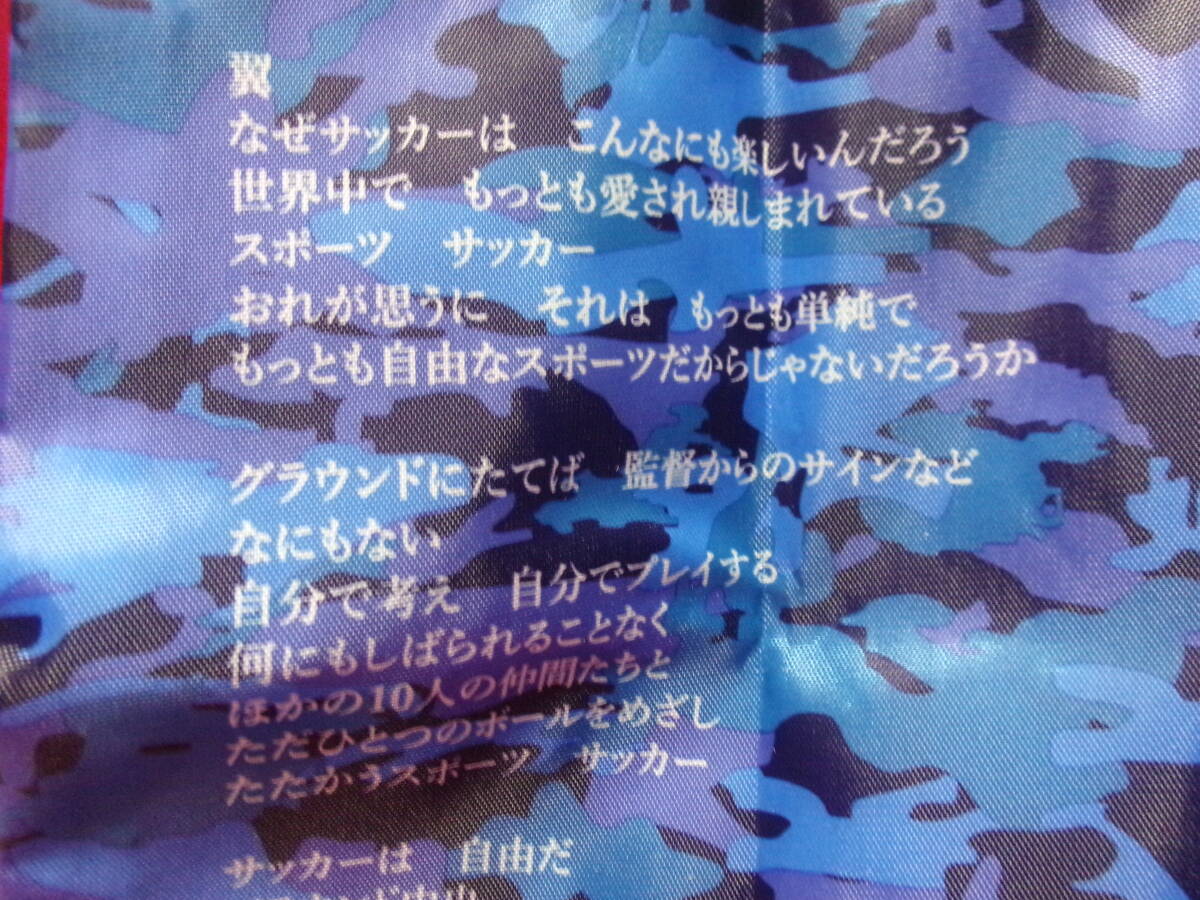 翼
なぜサッカーは　こんなにも楽しいんだろう
世界中で　もっとも愛され親しまれている
スポーツ　サッカー
おれが思うに　それは　もっとも単純で
もっとも自由なスポーツだからじゃないだろうか
グラウンドにたてば　監督からのサインなど
なにもない
自分で考え　自分でプレイする
何にもしばられることなく
ほかの10人の仲間たちと
ただひとつのボールをめざし
たたかうスポーツ　サッカー
サッカーは　自由だ